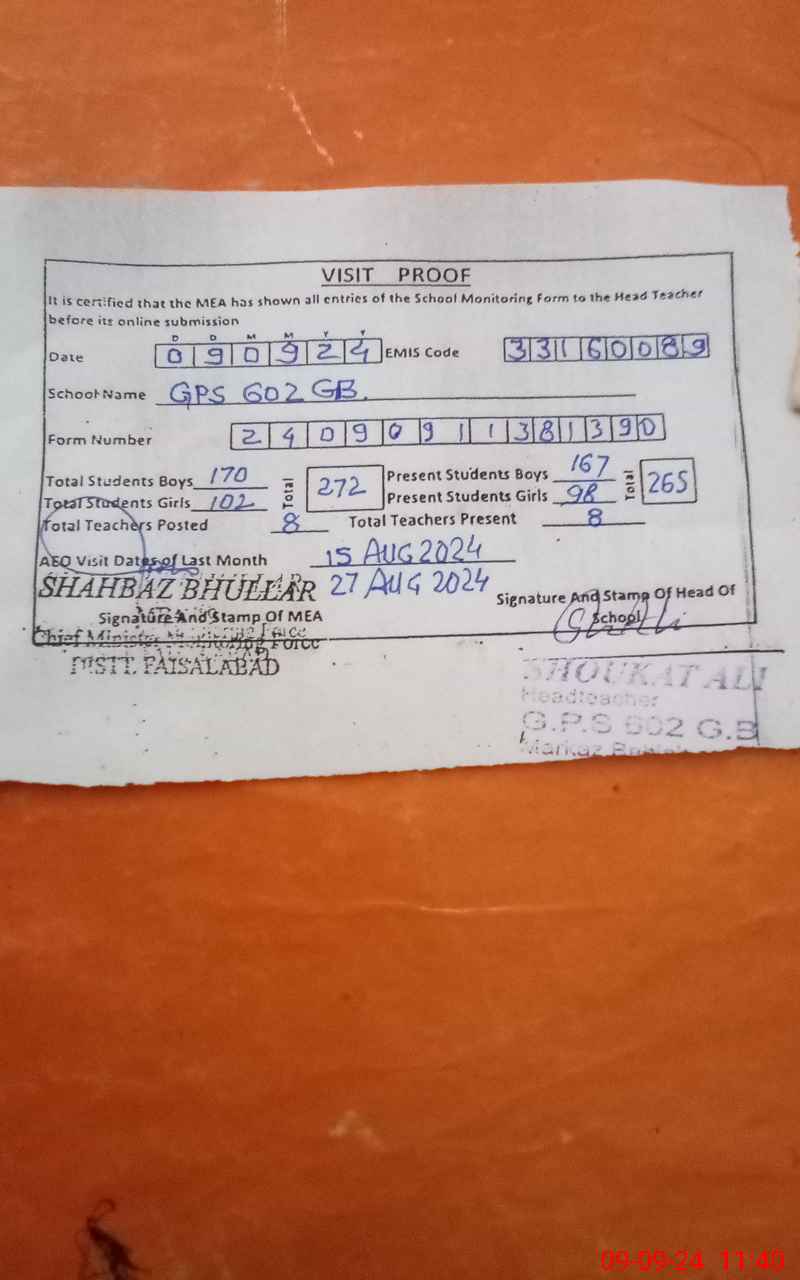 VISIT PROOF
It is certified that the MEA has shown all entries of the School Monitoring Form to the Head Teacher
before its online submission
D D M M Y Y
Date 0 9 0 9 2 4 EMIS Code 3 3 1 6 0 0 8 9
School Name GPS 602 GB.
Form Number 2 4 0 9 0 9 1 1 3 8 1 3 9 0
Total Students Boys 170 Present Students Boys 167
Total 272 Total 265
Total Students Girls 102 Present Students Girls 98
Total Teachers Posted 8 Total Teachers Present 8
AEO Visit Dates of Last Month 15 AUG 2024
SHAHBAZ BHULLAR 27 AUG 2024 Signature And Stamp Of Head Of
Signature And Stamp Of MEA School
Chief Minister Monitoring Force
DISTT. FAISALABAD
SHOUKAT ALI
Headteacher
G.P.S 602 G.B
Markaz
09-09-24 11:40